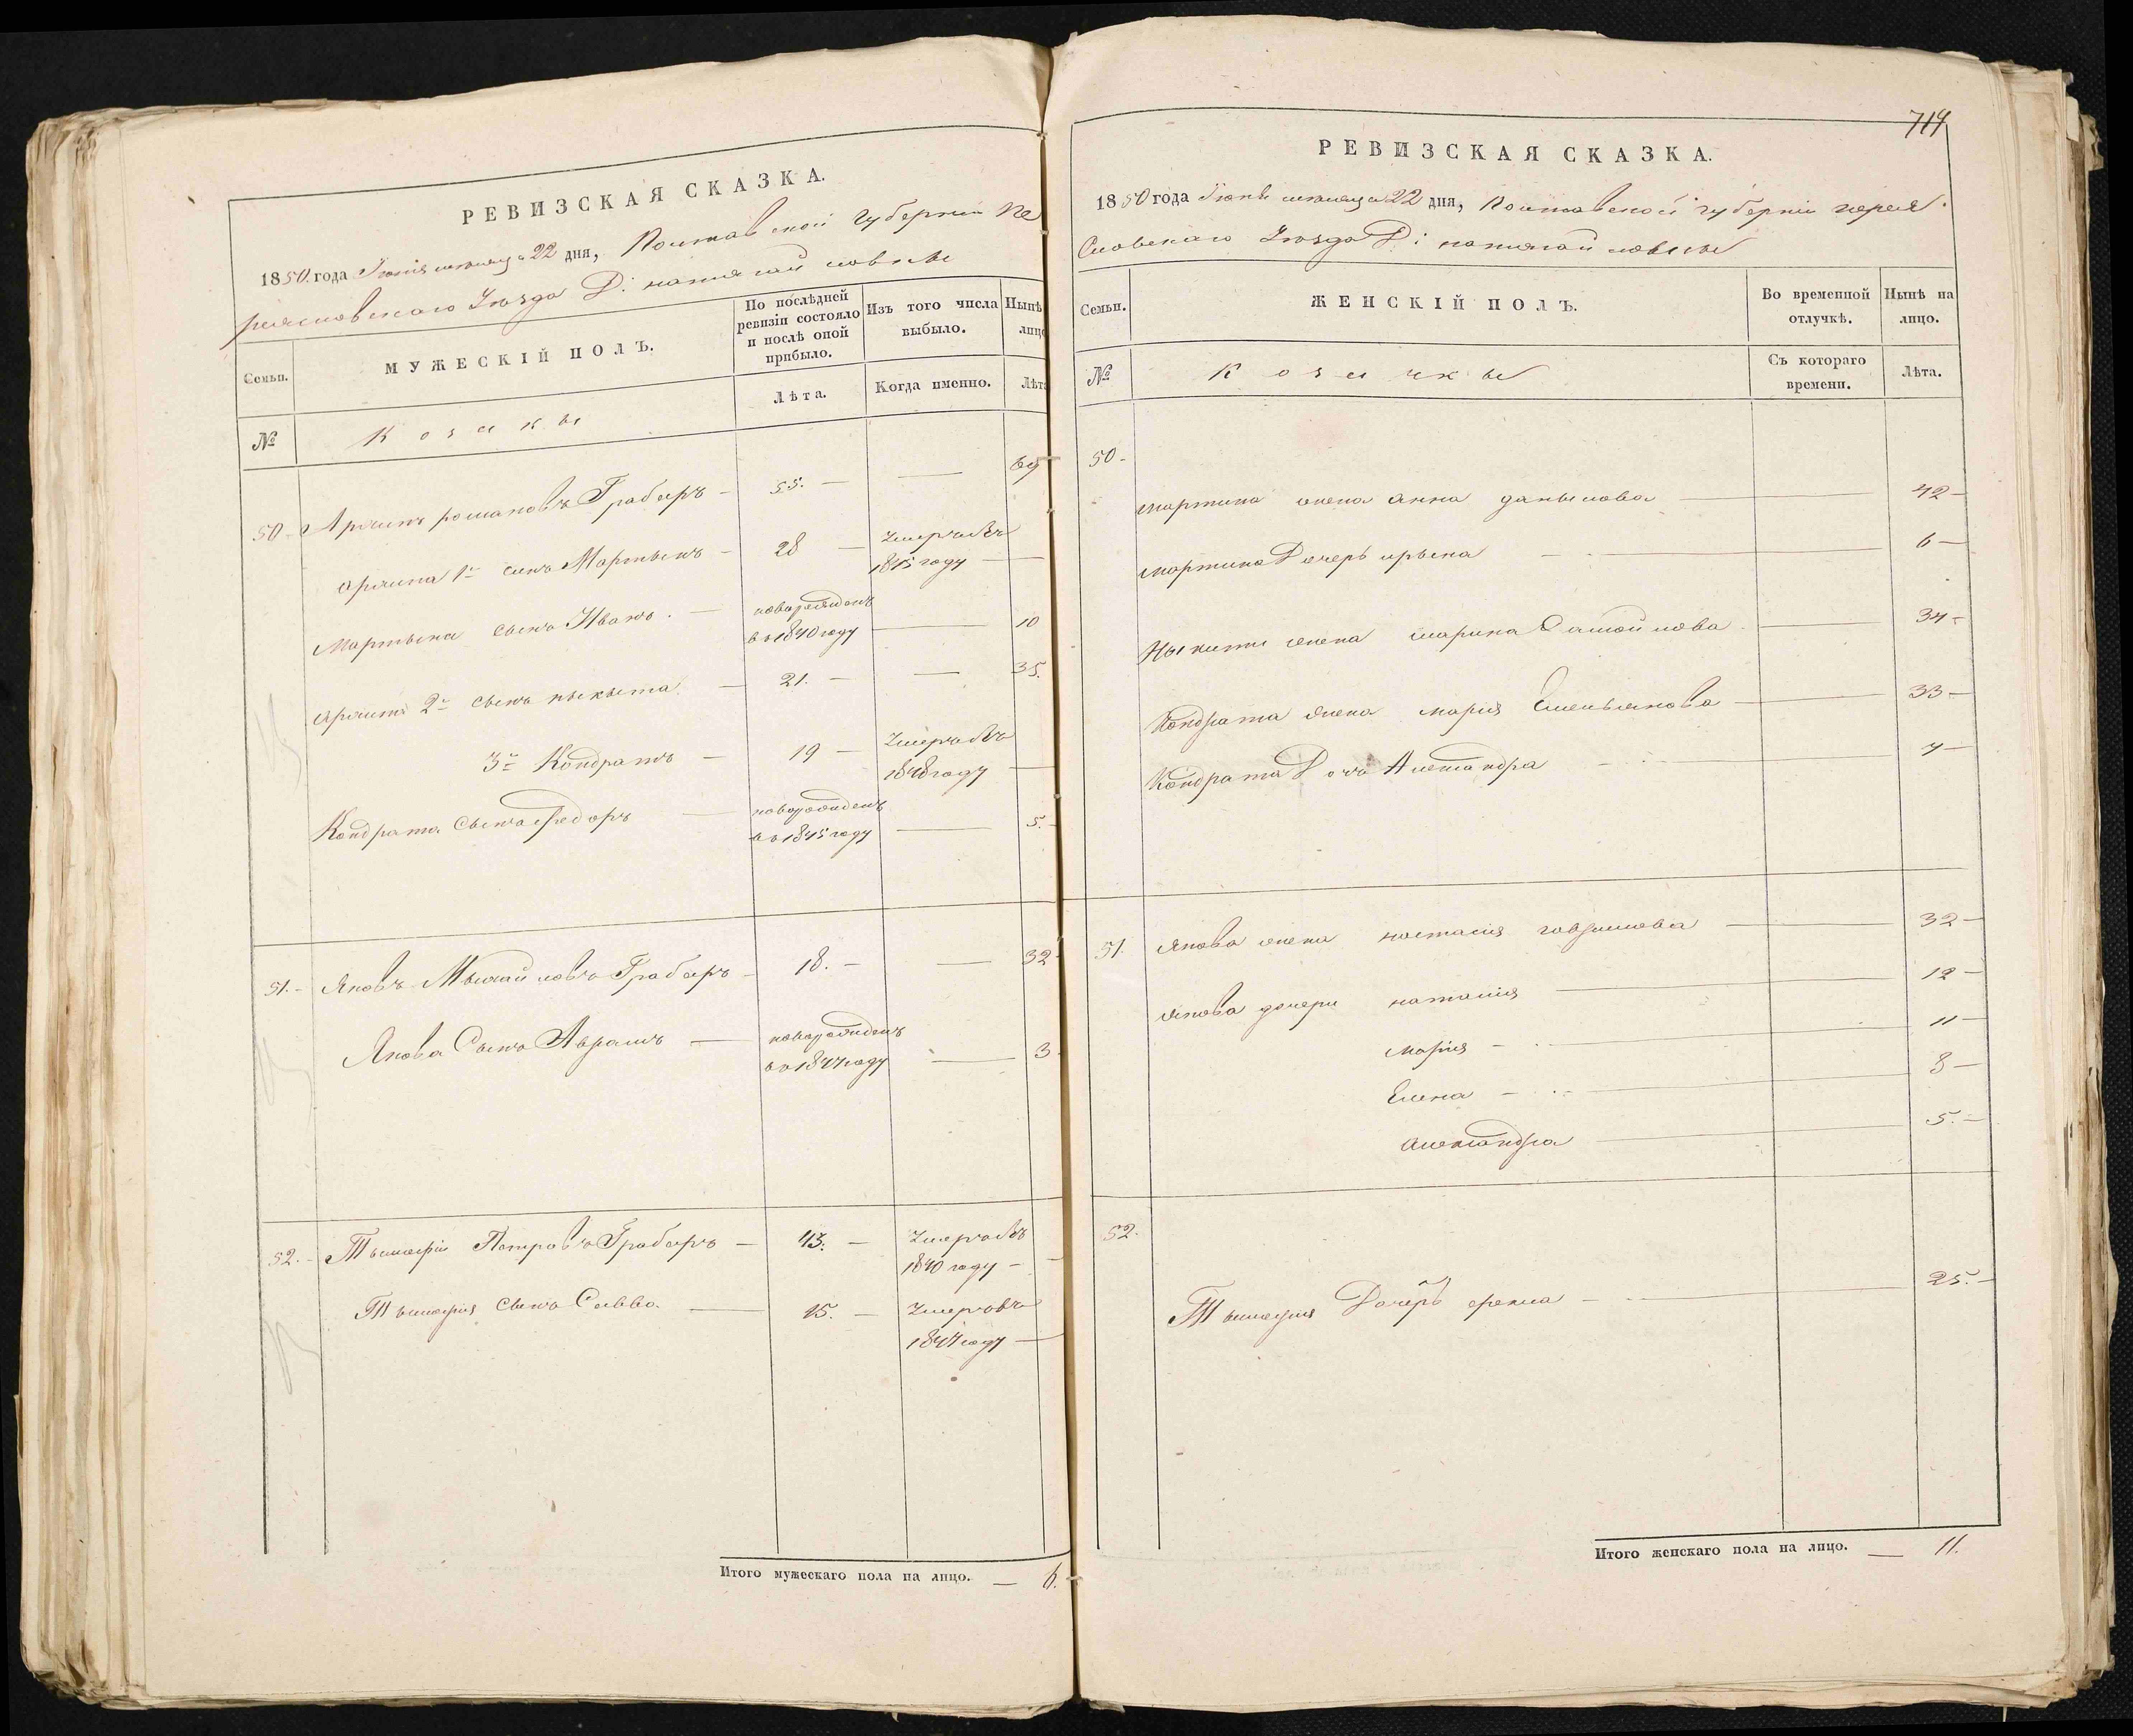 РЕВИЗСКАЯ СКАЗКА.
1850 года Іюня месяца 22 дня, Полтавской губерніи Пе
реясловского Уезда Д:
Семьи.
МУЖЕСКІЙ ПОЛЪ.
По послѣдней ревизіи состояло и послѣ оной прибыло.
Изъ того числа выбыло.
Нынѣ
лицо
Лѣта.
Когда именно.
Лѣта
№
Козаки
50 - Архипъ романовъ Грабарь - 55. — — 69
архипа 1й сынъ Мартынъ - 28 — Умеръ въ
1845 году —
Мартына сынъ Иванъ. — новорожденъ
въ 1840 году — 10
архипа 2й сынъ никита — 21. — — 35.
3й Кондратъ — 19 — Умеръ въ
1848 году —
Кондрата сынъ федоръ — новорожденъ
въ 1845 году — 5.
51. - Яковъ Михайловъ Грабарь - 18. — — 32
Якова Сынъ Аврамъ — новорожденъ
въ 1847 году — 3
52. - Тымофій Петровъ Грабарь — 43. — Умеръ въ
1840 году —
Тымофія сынъ Савва. — 15. — Умеръ въ
1844 году —
Итого мужескаго пола на лицо. — 6.
719
РЕВИЗСКАЯ СКАЗКА.
1850 года Іюня месяца 22 дня, Полтавской губерніи перея
словскаго Уезда Д:
Семьи.
ЖЕНСКІЙ ПОЛЪ.
Во временной отлучкѣ.
Нынѣ на лицо.
№
Козачки
Съ котораго времени.
Лѣта.
50 -
мартина жена анна данылова — 42 -
мартина Дочерь ирына — 6 —
Ныкиты жена марина Самойлова — 34 -
Кондрата жена марія Емельянова — 33 —
Кондрата Дочь Александра — 7 —
51. Якова жена настасія говрилова — 32 —
Якова дочери наталия — 12 —
Марія — 11 —
Елена — 8 —
александра — 5. —
52.
Тымофія Дочерь — 25. —
Итого женскаго пола на лицо. — 11.